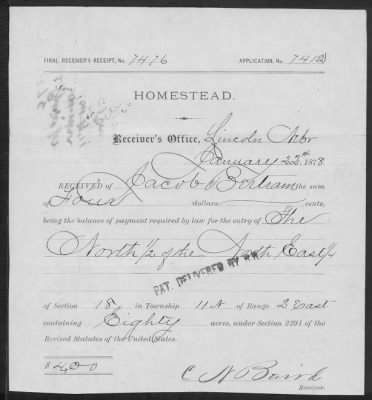 FINAL RECEIVER'S RECEIPT, No. 7476 APPLICATION, No. 7412
HOMESTEAD.
Receiver's Office, Lincoln Nbr
January 22nd 1878
RECEIVED of Jacob Bertram the sum
of Four dollars cents,
being the balance of payment required by law for the entry of The
North 1/2 of the North East 1/4
PAT. DELIVERED BY
of Section 18 in Township 11 N of Range 2 East
containing Eighty acres, under Section 2291 of the
Revised Statutes of the United States.
$4.00
C N Baird
Receiver.